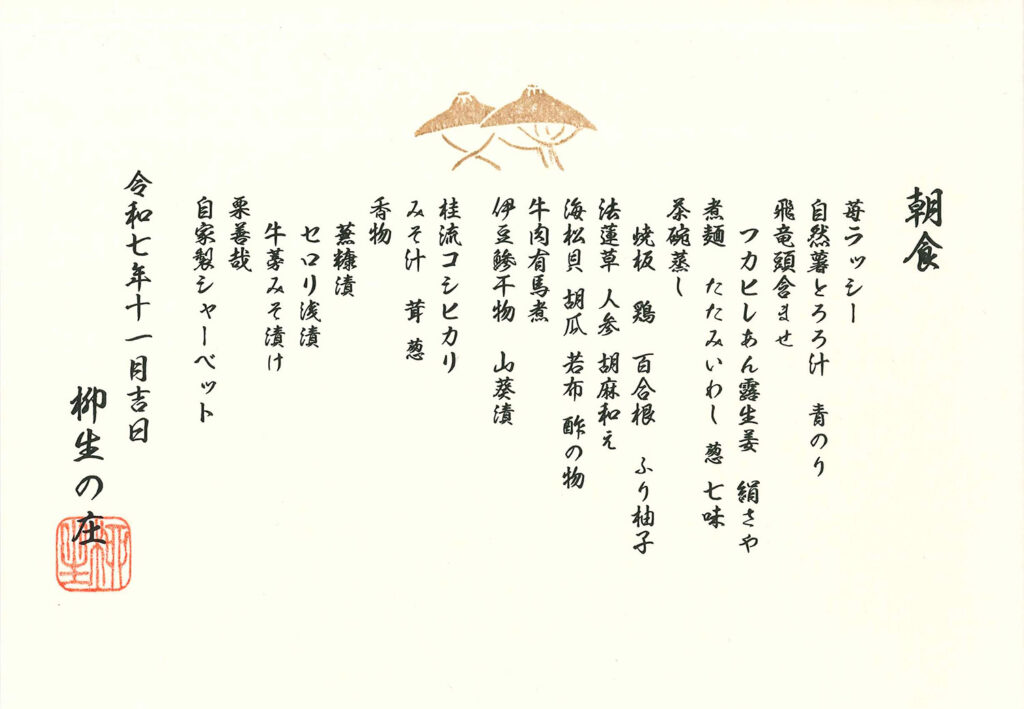 朝食
苺ラッシー
自然薯とろろ汁 青のり
飛竜頭含ませ
フカヒレあん露生姜 絹さや
煮麺 たたみいわし 葱 七味
茶碗蒸し
焼板 鶏 百合根 ふり柚子
法蓮草 人参 胡麻和え
海松貝 胡瓜 若布 酢の物
牛肉有馬煮
伊豆鯵干物 山葵漬
桂流コシヒカリ
みそ汁 茸 葱
香物
蕪糠漬
セロリ浅漬
牛蒡みそ漬け
栗善哉
自家製シャーベット
令和七年十一月吉日
柳生の庄